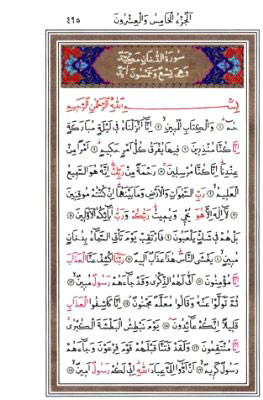 الجزء الخامس والعشرون ٤٩٥
سورة الدخان مكية
وهي تسع وخمسون آية
بسم الله الرحمن الرحيم
حم ۝ والكتاب المبين ۝ إنا أنزلناه في ليلة مباركة
إنا كنا منذرين ۝ فيها يفرق كل أمر حكيم ۝ أمرا من
عندنا إنا كنا مرسلين ۝ رحمة من ربك إنه هو السميع
العليم ۝ رب السموات والأرض وما بينهما إن كنتم موقنين
۝ لا إله إلا هو يحي ويميت ربكم ورب آبائكم الأولين ۝
بل هم في شك يلعبون ۝ فارتقب يوم تأتي السماء بدخان
مبين ۝ يغشى الناس هذا عذاب أليم ۝ ربنا اكشف عنا العذاب
إنا مؤمنون ۝ أنى لهم الذكرى وقد جاءهم رسول مبين ۝
ثم تولوا عنه وقالوا معلم مجنون ۝ إنا كاشفوا العذاب
قليلا إنكم عائدون ۝ يوم نبطش البطشة الكبرى
إنا منتقمون ۝ ولقد فتنا قبلهم قوم فرعون وجاءهم
رسول كريم ۝ أن أدوا إلي عباد الله إني لكم رسول أمين ۝